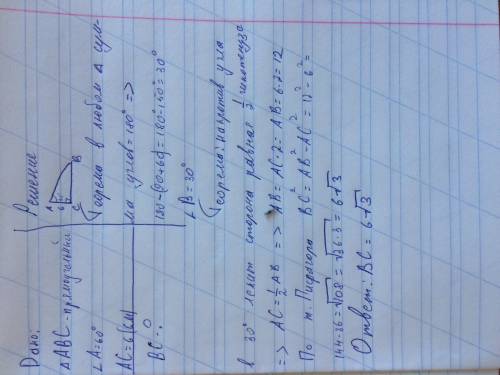 Дано:
△ABC - прямоугольный
∠A=60°
AC=6(см)
BC-?
Решение
A
6
60°
C
B
(Теорема в любом △ сум-
ма углов=180° =>
180-(90+60)=180-150=30°
∠B=30°
(Теорема: напротив угла
в 30° лежит сторона равная 1/2 гипотенуза
=> AC=1/2 AB => AB=AC·2=AB=6·2=12
По т. Пифагора BC²=AB²-AC²=12²-6²=
144-36=√108=√36·3=6√3
Ответ: BC=6√3